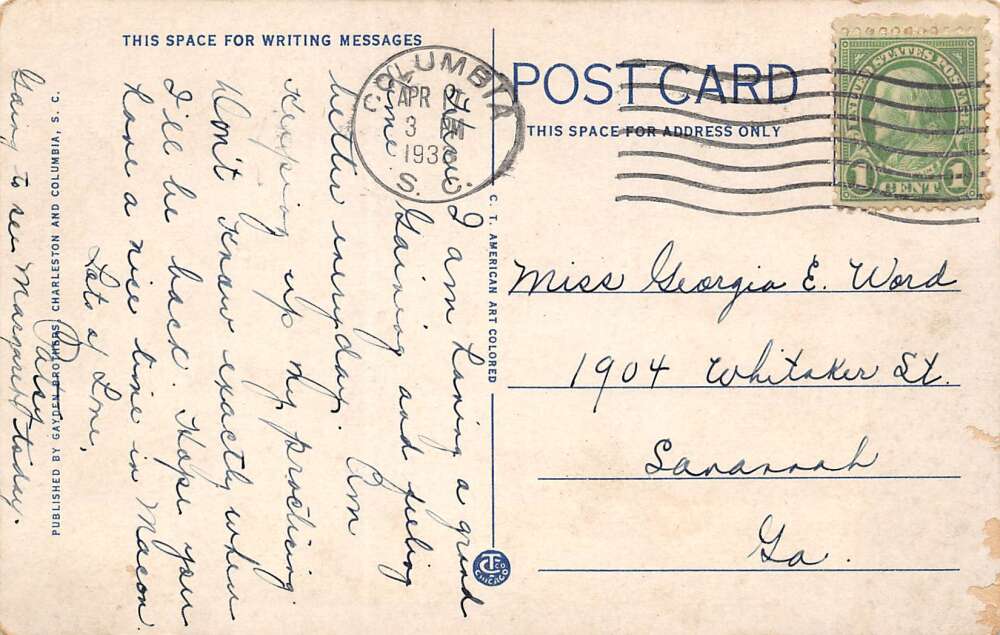 THIS SPACE FOR WRITING MESSAGES
I am having a grand
time. Gaining and feeling
better everyday. Am
Keeping up my practicing.
Don't know exactly when
I'll be back. Hope you
have a nice time in Macon.
Lots of Love,
Patsy
Going to see Margaret today.
PUBLISHED BY GAYDEN BROTHERS, CHARLESTON AND COLUMBIA, S. C.
C. T. AMERICAN ART COLORED
COLUMBIA
APR
3
S. C.
POST CARD
THIS SPACE FOR ADDRESS ONLY
UNITED STATES POSTAGE
1 CENT 1
Miss Georgia E. Word
1904 Whitaker St.
Savannah
Ga.
CT CO
CHICAGO